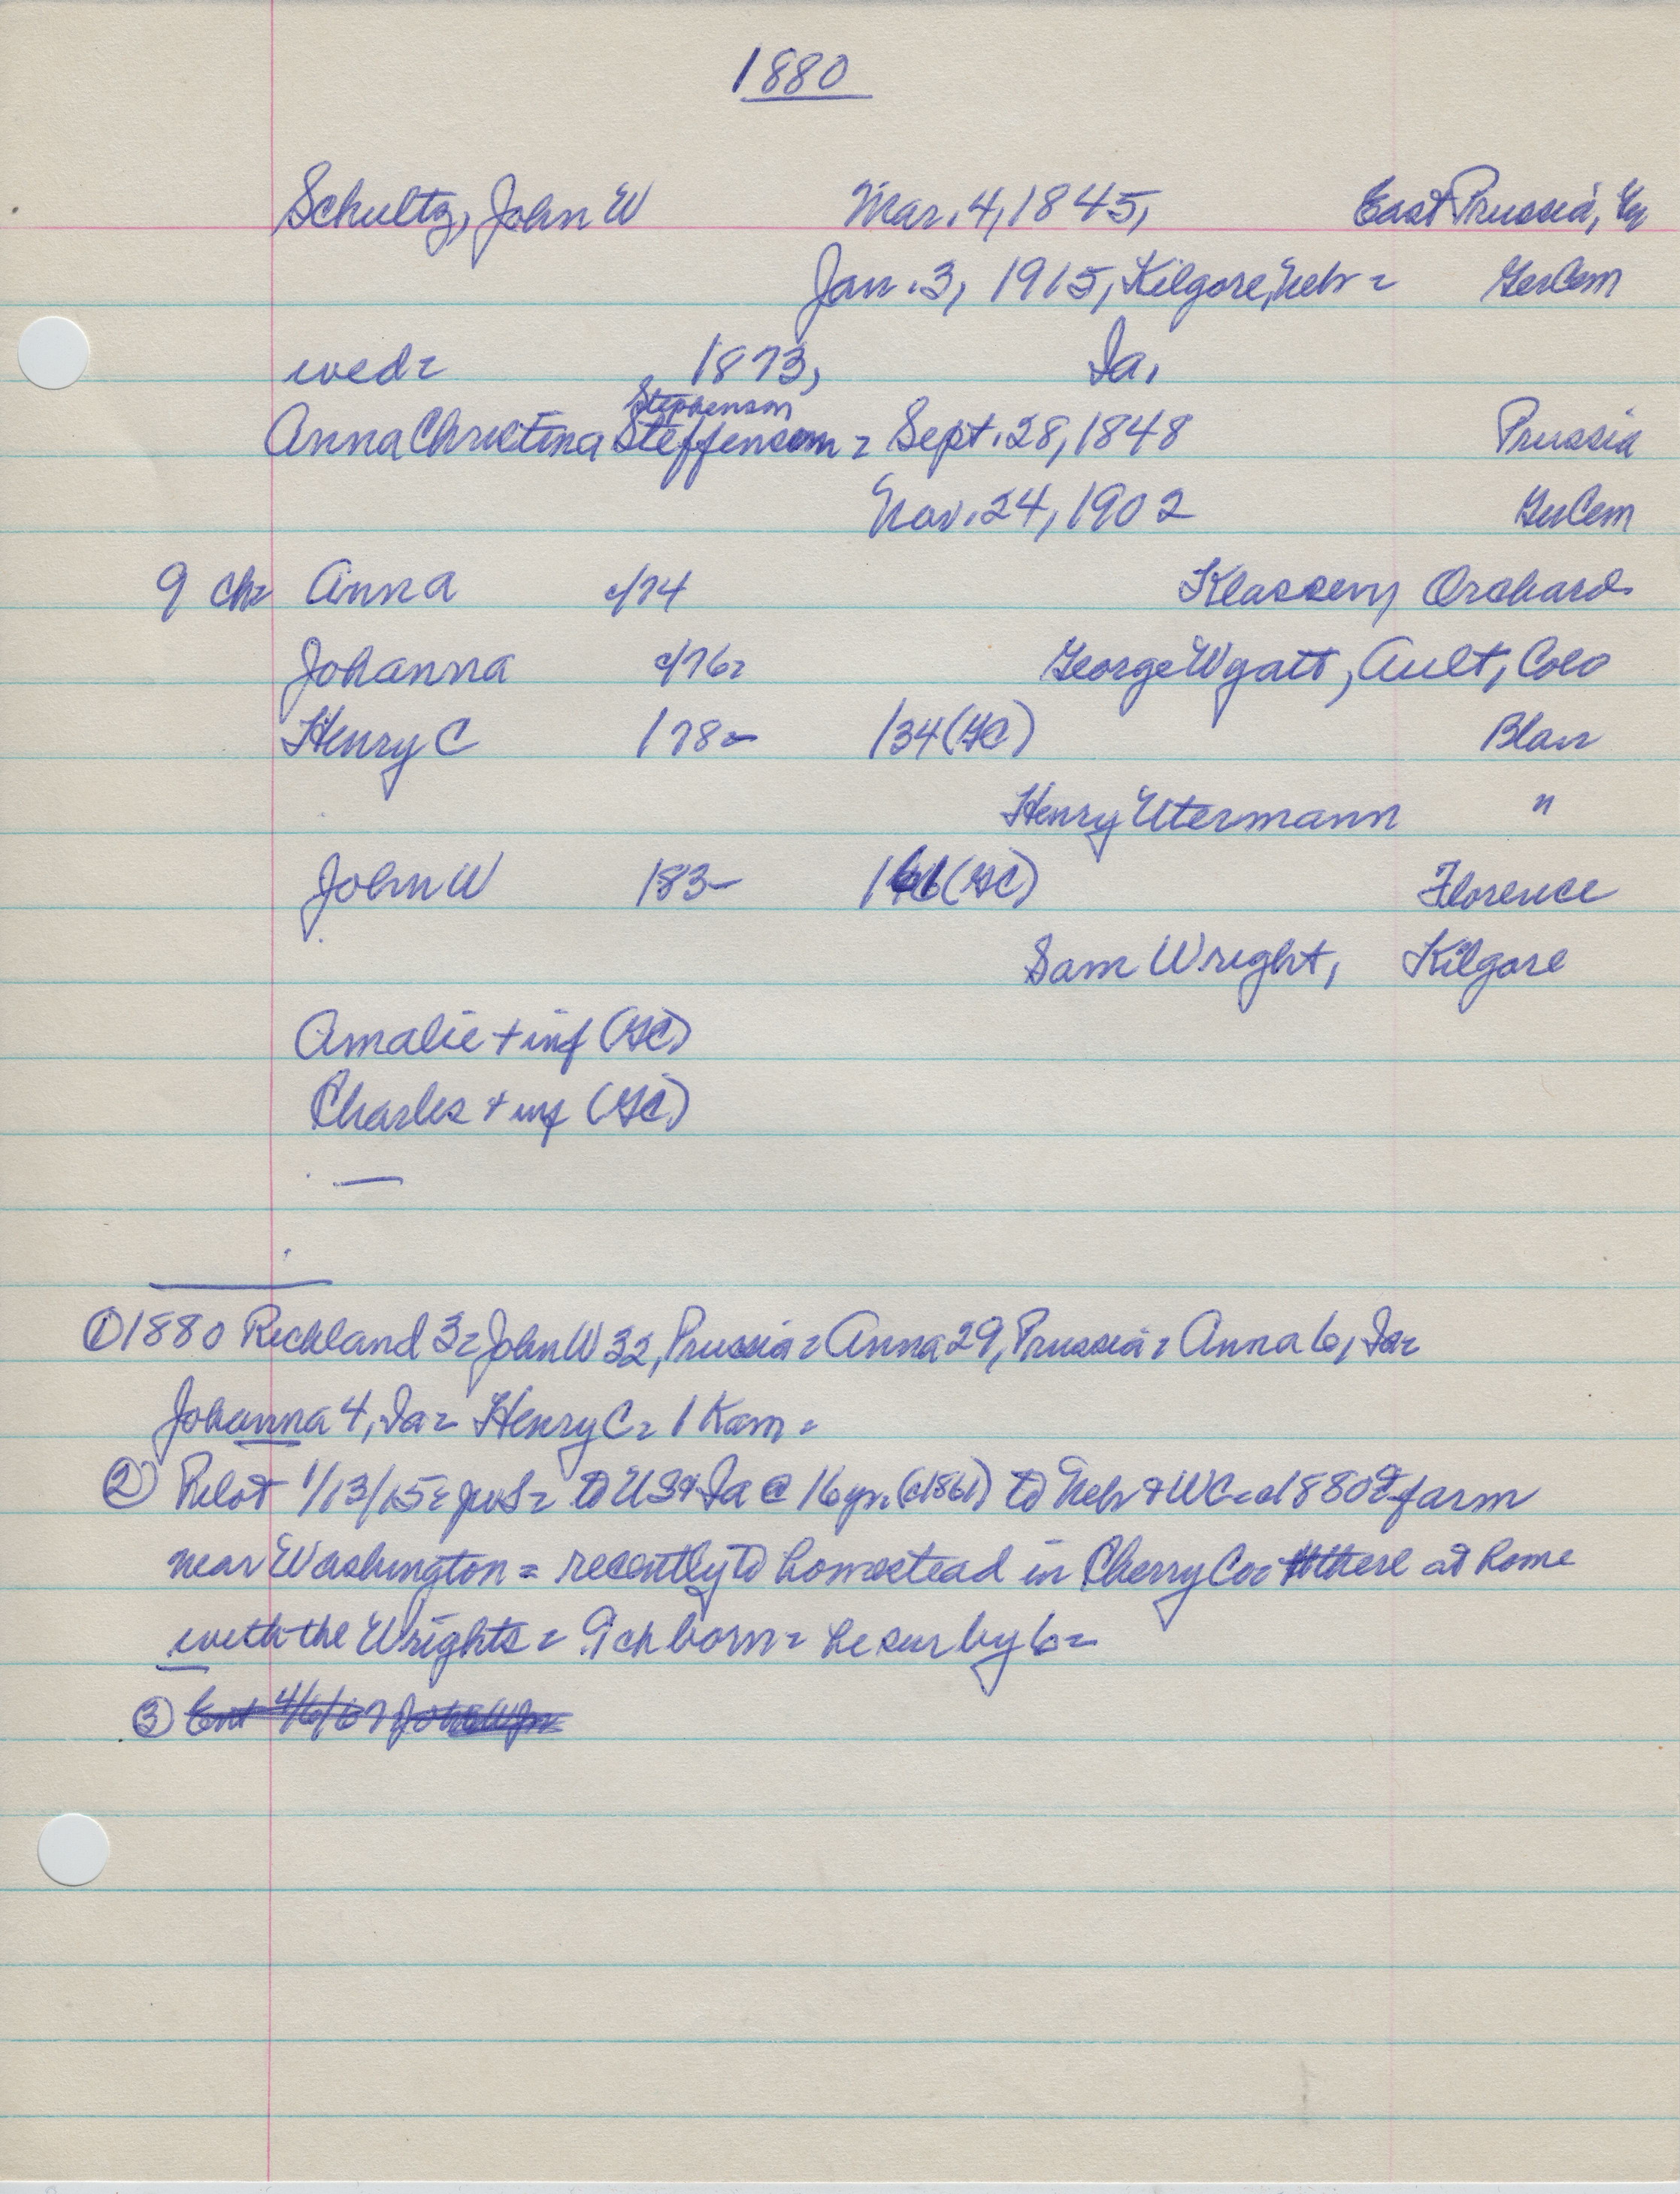 1880
Schultz, John W Mar. 4, 1845, East Prussia, Ger
Jan. 3, 1915, Kilgore, Neb = GerCem
wed = 1873, Ia,
Stephenson
Anna Christina Steffensen = Sept. 28, 1848 Prussia
Nov. 24, 1902 GerCem
9 ch = Anna c/74 Klassen, Orchard
Johanna c/76 = George Wyatt, Ault, Colo
Henry C /78 - /34 (GC) Blair
Henry Utermann "
John W /83 - (GC) Florence
Sam Wright, Kilgore
Amalie + inf (GC)
Charles + inf (GC)
—
① 1880 Richland 3 = John W 32, Prussia = Anna 29, Prussia = Anna 6, Ia =
Johanna 4, Ia = Henry C = 1
② Pilot 1/13/15 = = to US & Ia @ 16 yr. (c1861) to Neb & WC = c1880 = farm
near Washington = recently to homestead in Cherry Co = there at home
with the Wrights = 9 ch born = he sur by 6 =
③ Ent 4/6/67 John W Jr